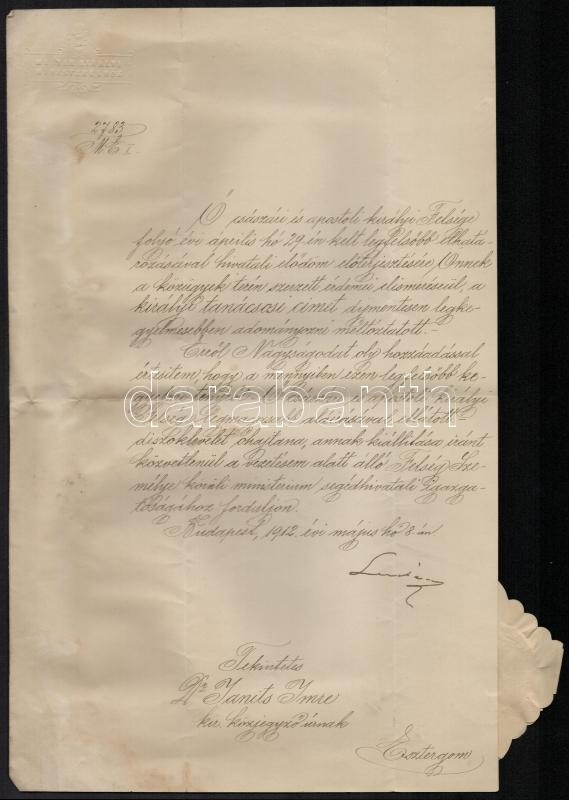 MAGYAR KIRÁLYI
MINISZTERELNÖK
2783
M.E. I.
Ő császári és apostoli királyi Felsége
folyó évi április hó 29-én kelt legfelsőbb elhatá-
rozásával hivatali elődöm előterjesztésére, Önnek
a közügyek terén szerzett érdemei elismeréséül, a
királyi tanácsosi címet díjmentesen legke-
gyelmesebben adományozni méltóztatott.-
Erről Nagyságodat oly hozzáadással
értesítem, hogy a mennyiben ezen legfelsőbb ke-
és apostoli királyi
aláírásával ellátott
díszoklevelét óhajtana, annak kiállítása iránt
közvetlenül a vezetésem alatt álló Felség Sze-
mélye körüli ministerium segédhivatali Igazga-
tóságához forduljon.
Budapest, 1912. évi május hó 8-án
darabanth
Tekintetes
Dr Janits Imre
kir. közjegyző úrnak
Esztergom